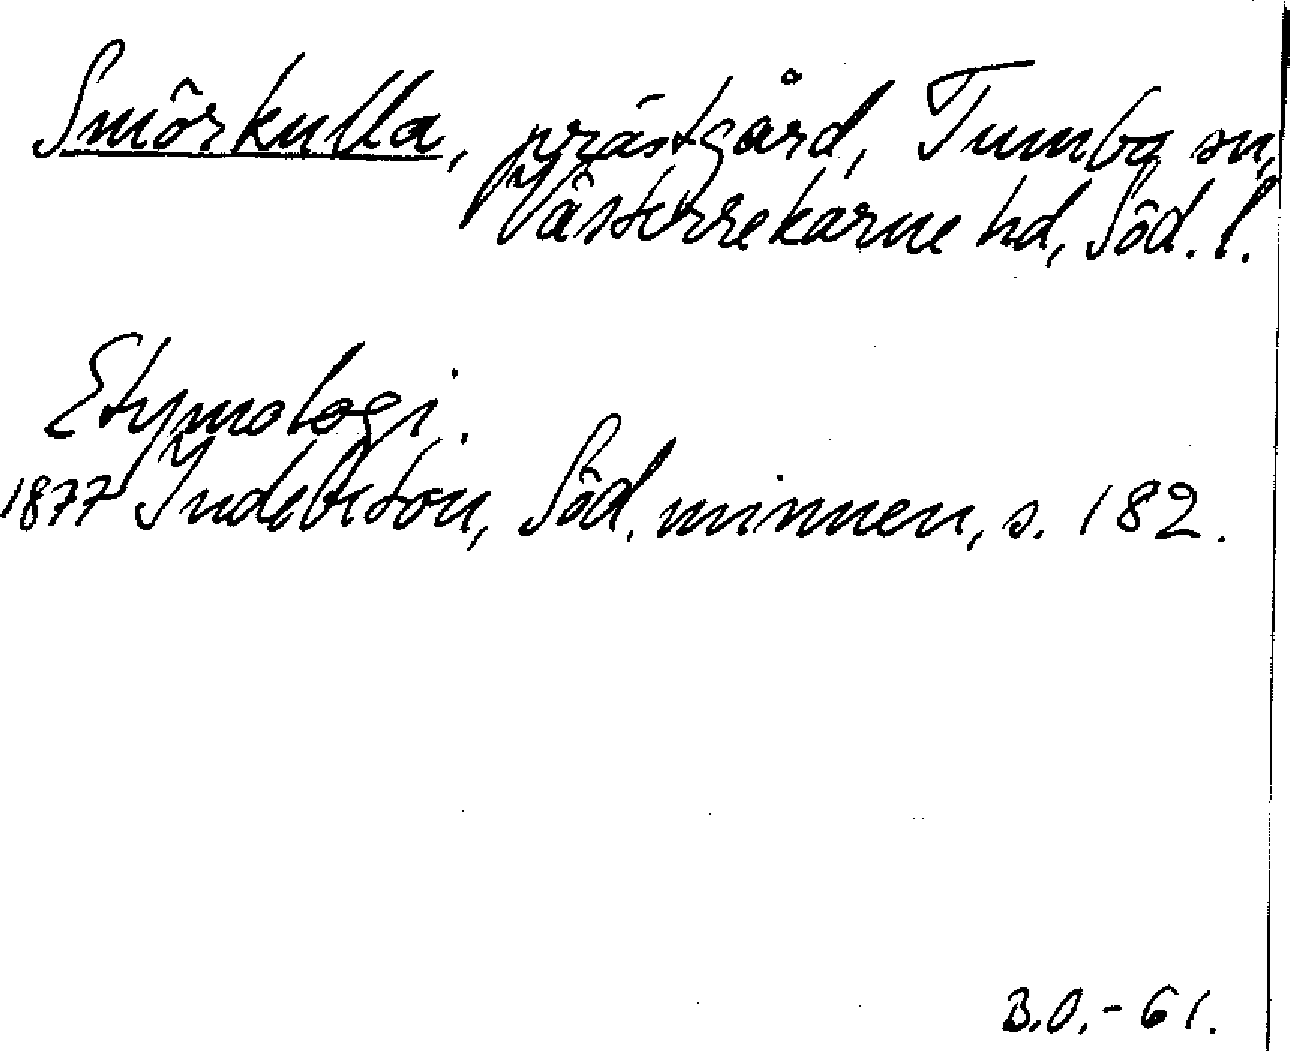 Smörkulla, prästgård, Tumbo sn,
Västerrekarne hd, Söd. l.
Etymologi.
1877 Indebetou, Söd. minnen, s. 182.
B.O.-61.